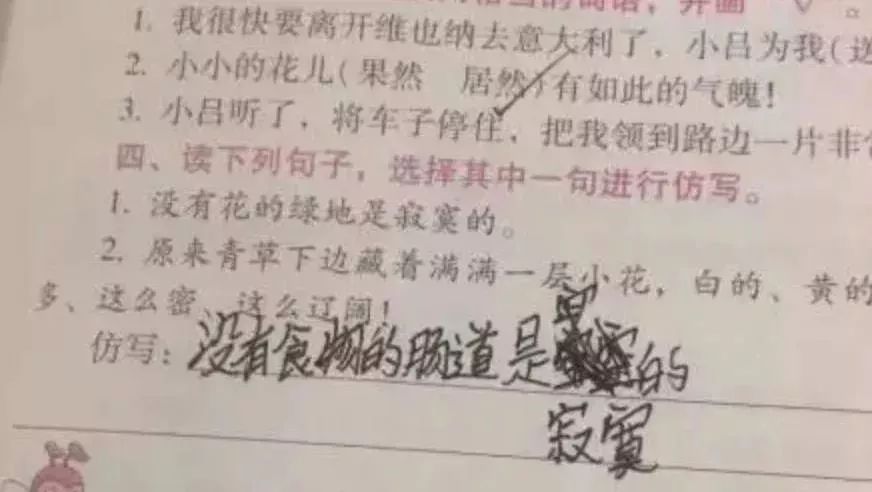 1. 我很快要离开维也纳去意大利了，小吕为我(送
2. 小小的花儿(果然 居然)有如此的气魄！
3. 小吕听了，将车子停住，把我领到路边一片非常
四、读下列句子，选择其中一句进行仿写。
1. 没有花的绿地是寂寞的。
2. 原来青草下边藏着满满一层小花，白的、黄的
多、这么密、这么辽阔！
仿写：没有食物的肠道是的
寂寞